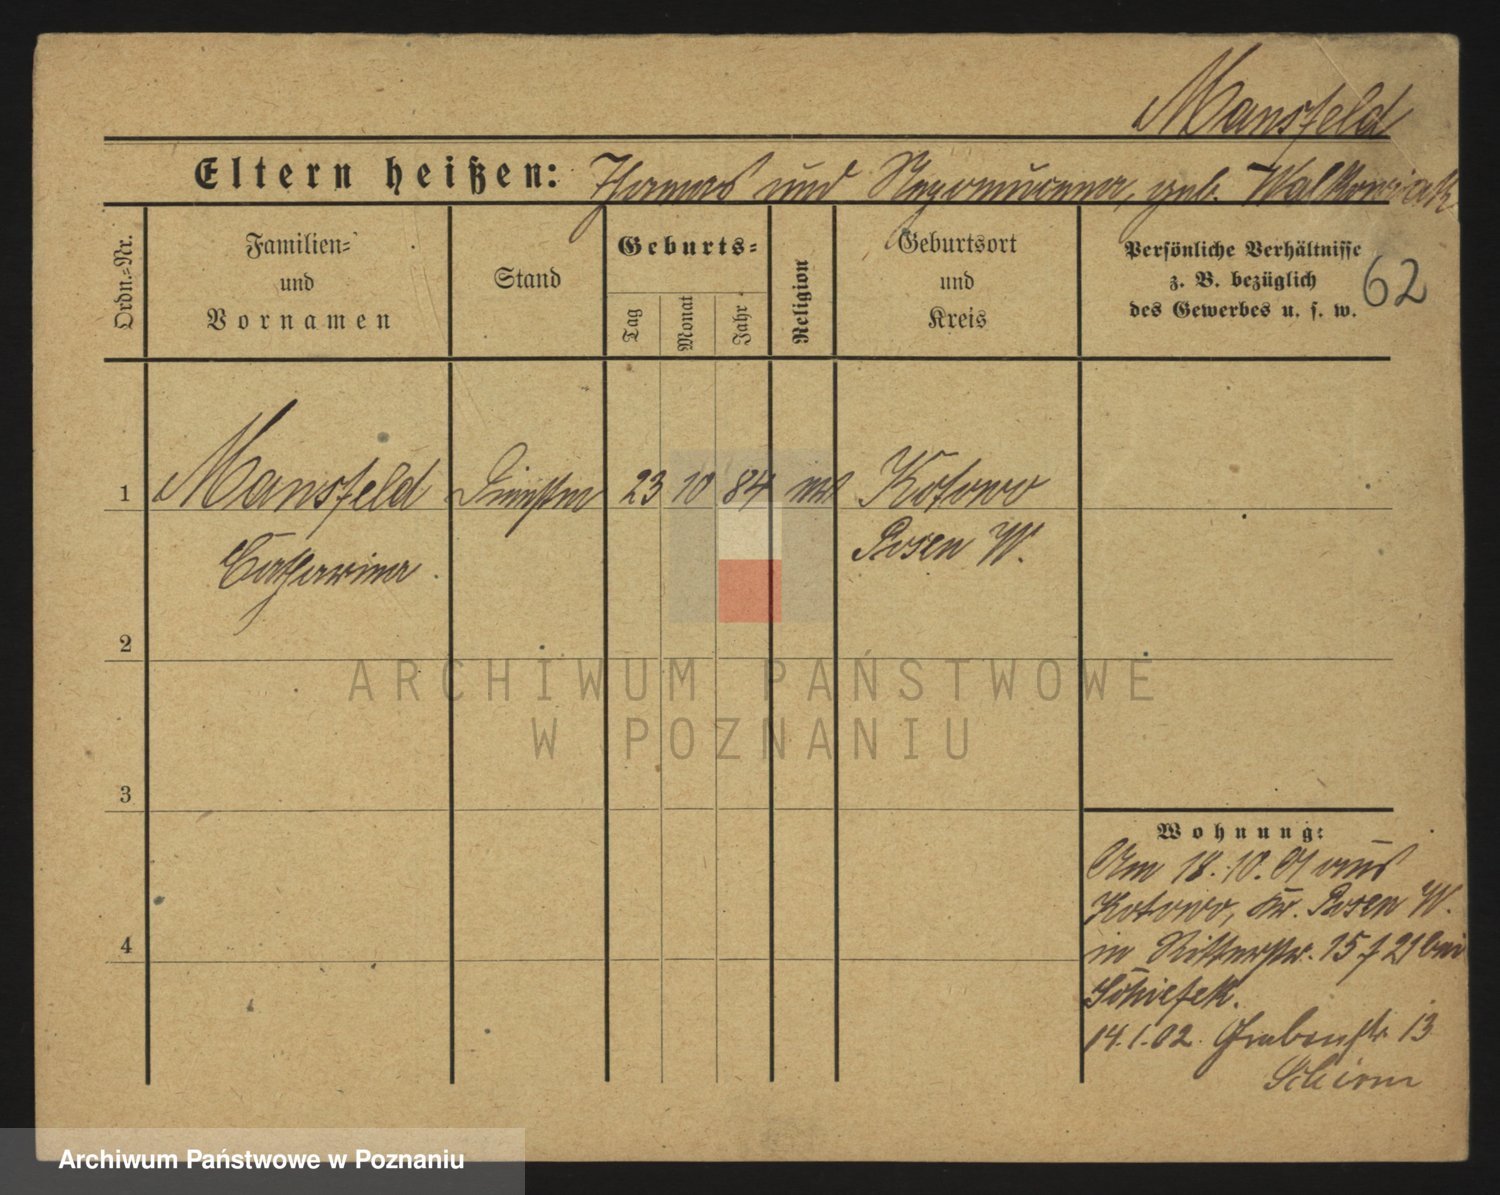 Mansfeld
Eltern heißen: Thomas und Nepomucena, geb. Walkowiak
Ordn.=Nr.
Familien=
und
Vornamen
Stand
Geburts=
Tag
Monat
Jahr
Religion
Geburtsort
und
Kreis
Persönliche Verhältnisse
z. B. bezüglich
des Gewerbes u. s. w.
62
1 Mansfeld 23 10 84 Kotowo
Catharina Posen W.
2
3
4
Wohnung:
Am 18.10.01 aus
Kotowo, Kr. Posen W.
in Ritterstr. 15 f 21 bei
14.1.02. Grabenstr 13
ARCHIWUM PAŃSTWOWE
W POZNANIU
Archiwum Państwowe w Poznaniu